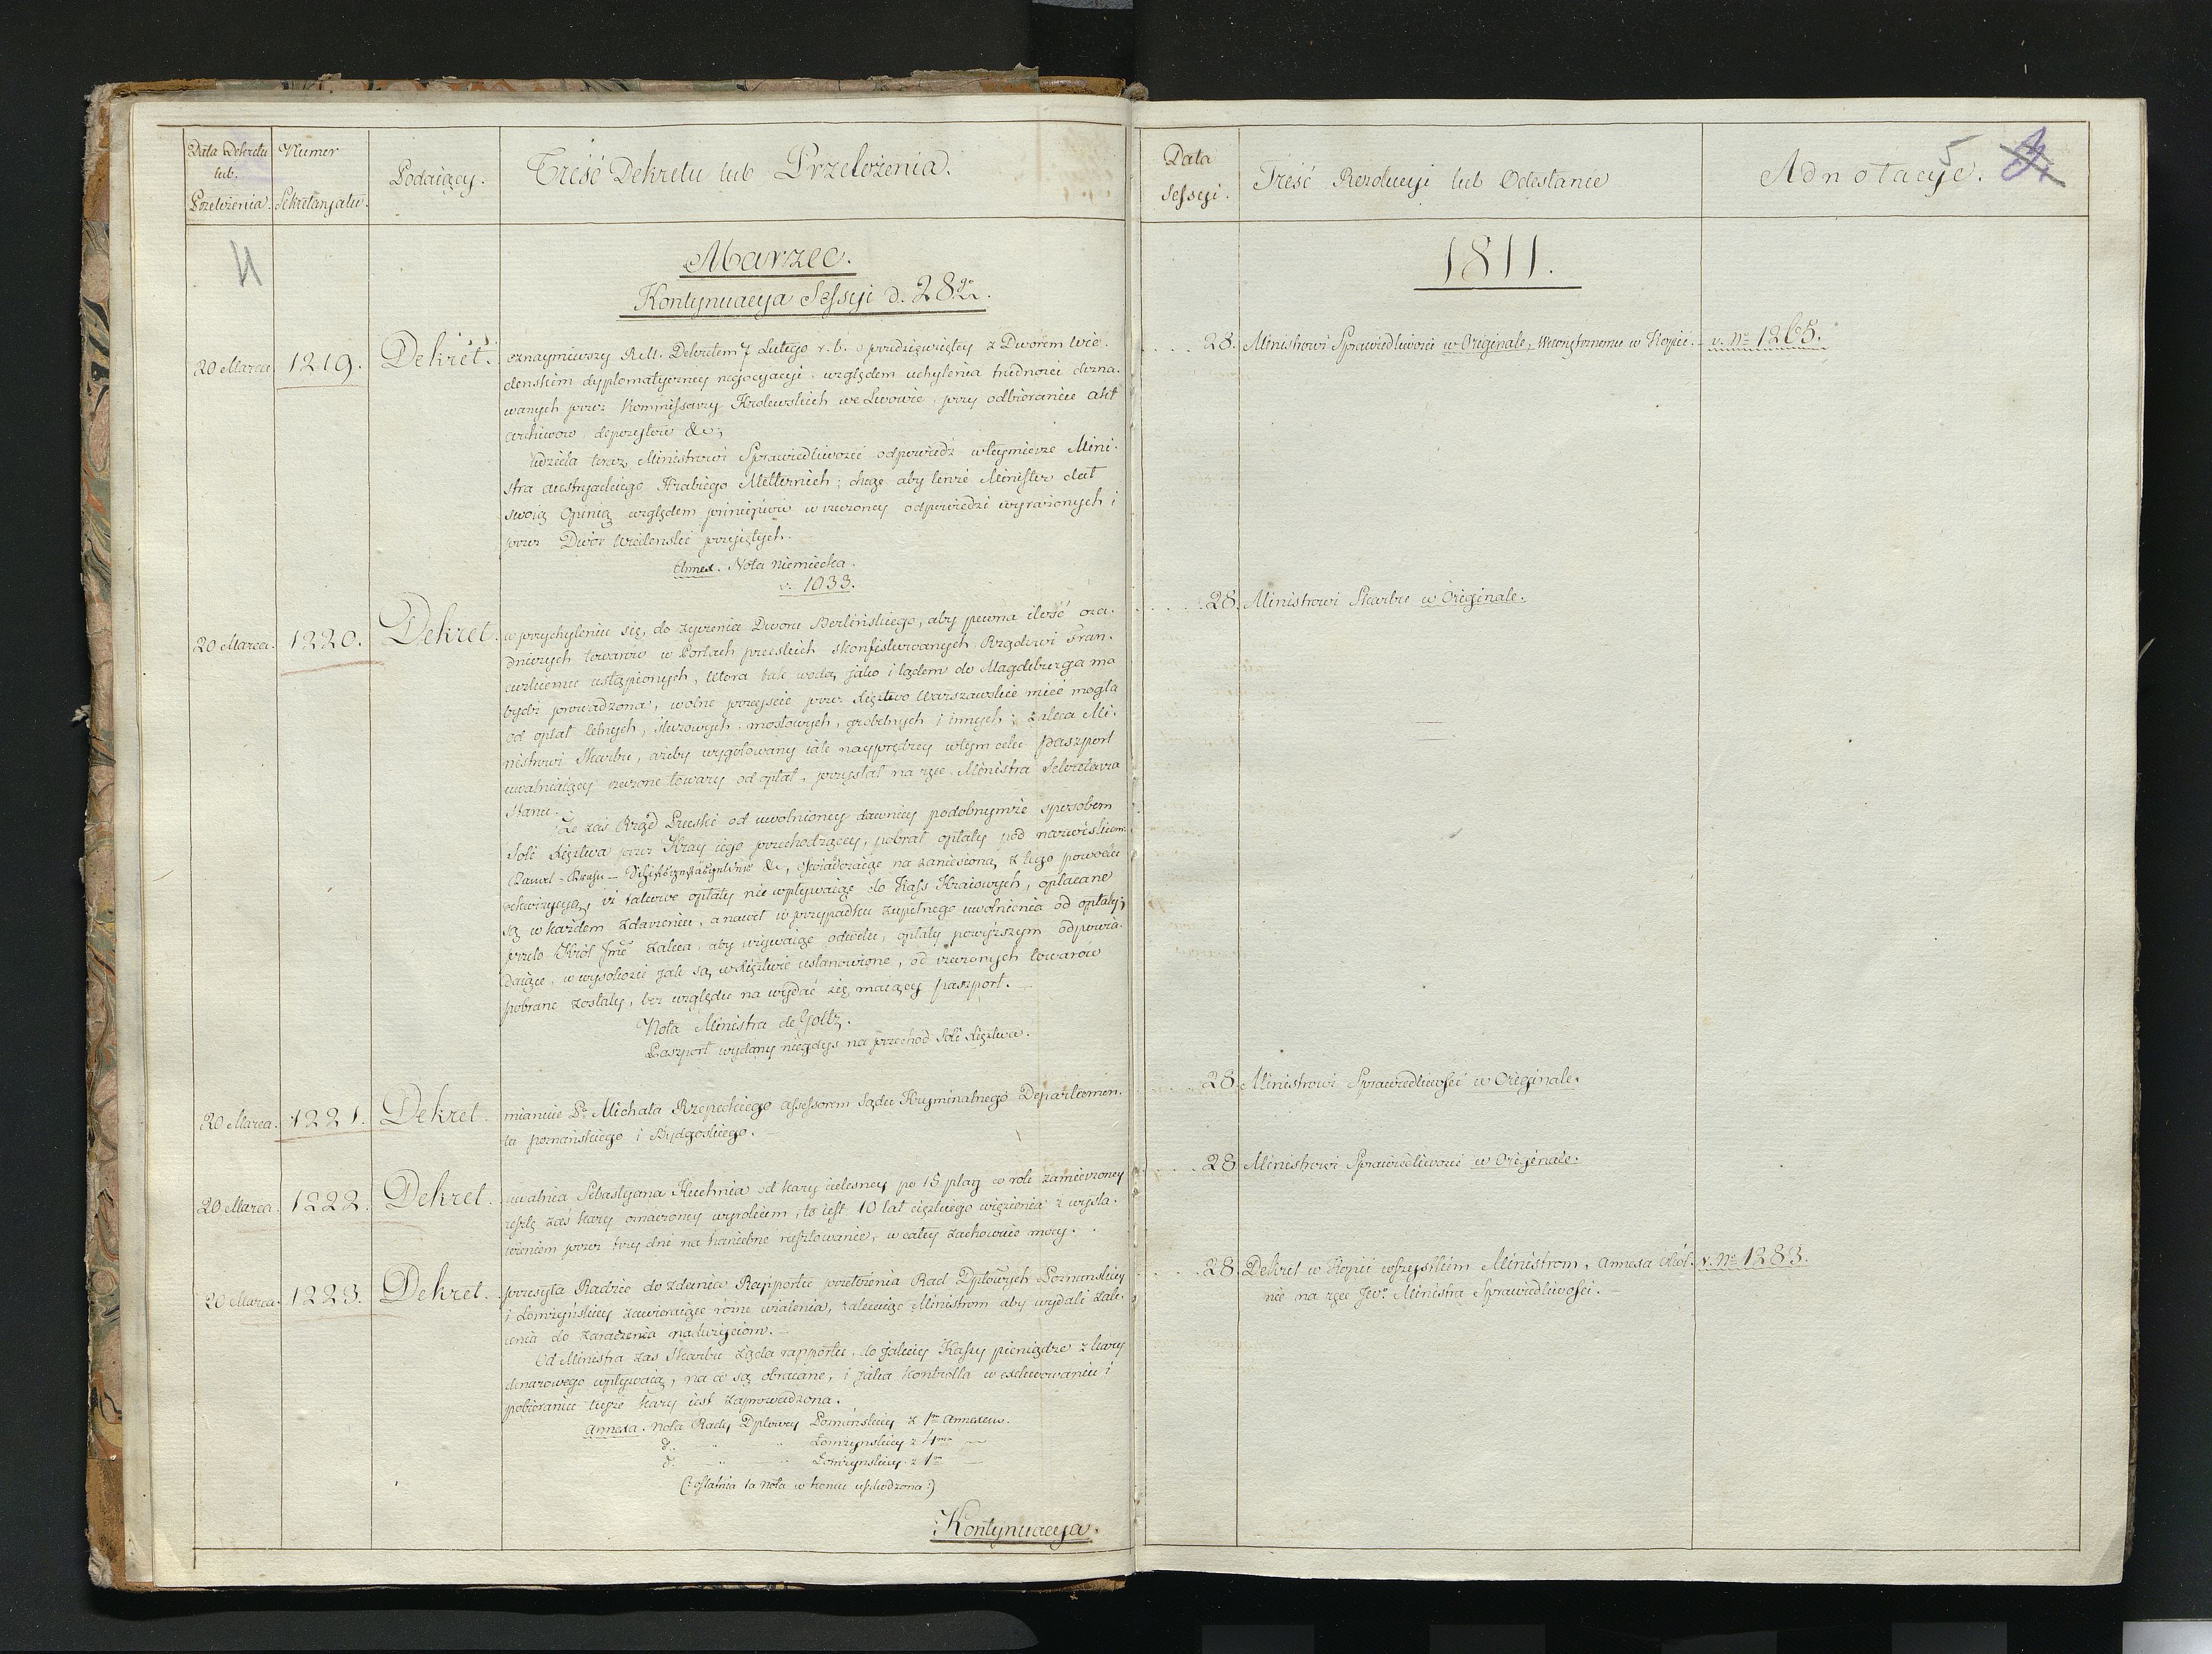 Data Dekretu
lub.
Przełożenia.
Numer
Sekretaryatu.
Podaiący.
Treść Dekretu lub Przełożenia.
Marzec.
Kontynuacya Sessyi d. 28go
20 Marca
1219.
Dekret.
oznaymiwszy R.M. Dekretem 7 Lutego r. b. o przedsięwziętey z Dworem Wie-
denskim dyplomatyczney negocyacyi względem uchylenia trudności dozna-
wanych przez Kommissarzy Krolewskich we Lwowie, przy odbieraniu akt
archiwow, depozytow &c;
Udziela teraz, Ministrowi Sprawiedliwości odpowiedź w teymierze Mini-
stra austryackiego Hrabiego Metternich; chcąc aby tenże Minister dał
swoią Opinią względem principiow w rzeczoney odpowiedzi wyrażonych i
przez Dwór Wiedenski przyiętych.
Annex. Nota niemiecka.
v. 1033.
20 Marca.
1220.
Dekret.
w przychyleniu się, do życzenia Dworu Berlińskiego, aby pewna ilość osa-
dniczych towarów w Portach pruskich skonfiskowanych Rządowi Fran-
cuzkiemu ustąpionych, która tak wodą jako i lądem do Magdeburga ma
bydź prowadzona, wolne przeyście przez Księstwo Warszawskie mieć mogła
od opłat celnych, śluzowych, mostowych, grobelnych i innych; zaleca Mi-
nistrowi Skarbu, ażeby wygotowany iak nayprędzey w tym celu paszport
uwalniaiący rzeczone towary od opłat, przysłał na ręce Ministra Sekretarza
Stanu.
Że zaś Rząd Pruski od uwolnioney dawniey podobnymże sposobem
Soli Księstwa przez Kray iego przechodzącey, pobrał opłaty pod nazwiskiem
&c, oświadczaiąc na zaniesioną z tego powodu
rekwizycyą, iż takowe opłaty nie wpływaiąc do Kass Kraiowych, opłacane
są w każdem zdarzeniu, a nawet w przypadku zupełnego uwolnienia od opłaty;
przeto Król Jmć zaleca, aby używaiąc odwetu, opłaty powyższym odpowia-
daiące, w wysokości jak są w Księstwie ustanowione, od rzeczonych towarów
pobrane zostały, bez względu na wydać się maiący paszport.
Nota Ministra de Goltz.
Paszport wydany niegdys na przechód Soli Księstwa.
20 Marca.
1221.
Dekret.
mianuie P. Michała Rzepeckiego assessorem Sądu Kryminalnego Departamen-
tu poznańskiego i Bydgoskiego.
20 Marca.
1222.
Dekret.
uwalnia Sebastyana Kuchnia od kary cielesney po 15 plag w rok zamierzoney
resztę zaś kary oznaczoney wyrokiem, to iest 10 lat cięzkiego więzienia z wysta-
wieniem przez trzy dni na haniebne rusztowanie, w całey zachowuie mocy.
20 Marca.
1223.
Dekret.
przesyła Radzie do zdania Rapportu przełożenia Rad Dptowych Poznanskiey
i Łomżyńskiey zawieraiące różne użalenia, zalecaiąc Ministrom aby wydali zale-
cenia do zaradzenia nadużyciom.
Od Ministra zas Skarbu żąda rapportu, do jakiey Kassy pieniądze z kary
denarowego wpływaią, na co są obracane, i jaka kontrolla w exekwowaniu i
pobieraniu teyże kary iest zaprowadzona.
Annexa. Nota Rady Dptowey Poznańskiey z 1m annexem.
d. Łomżynskiey z 4ma
d. Łomżynskiey z 1m
(: ostatnia ta nota w koncu uszkodzona :)
Kontynuacya.
Data
Sessyi.
Treść Rezolucyi lub Odesłanie
Adnotacye.
5
1811.
28.
Ministrowi Sprawiedliwości w Originale, Wewnętrznemu w Kopii.
v. No 1265.
28.
Ministrowi Skarbu w Originale.
28
Ministrowi Sprawiedliwości w Originale.
28
Ministrowi Sprawiedliwości w Originale.
28
Dekret w Kopii wszystkim Ministrom, annexa
v. No 1283.
nie na ręce JW. Ministra Sprawiedliwości.